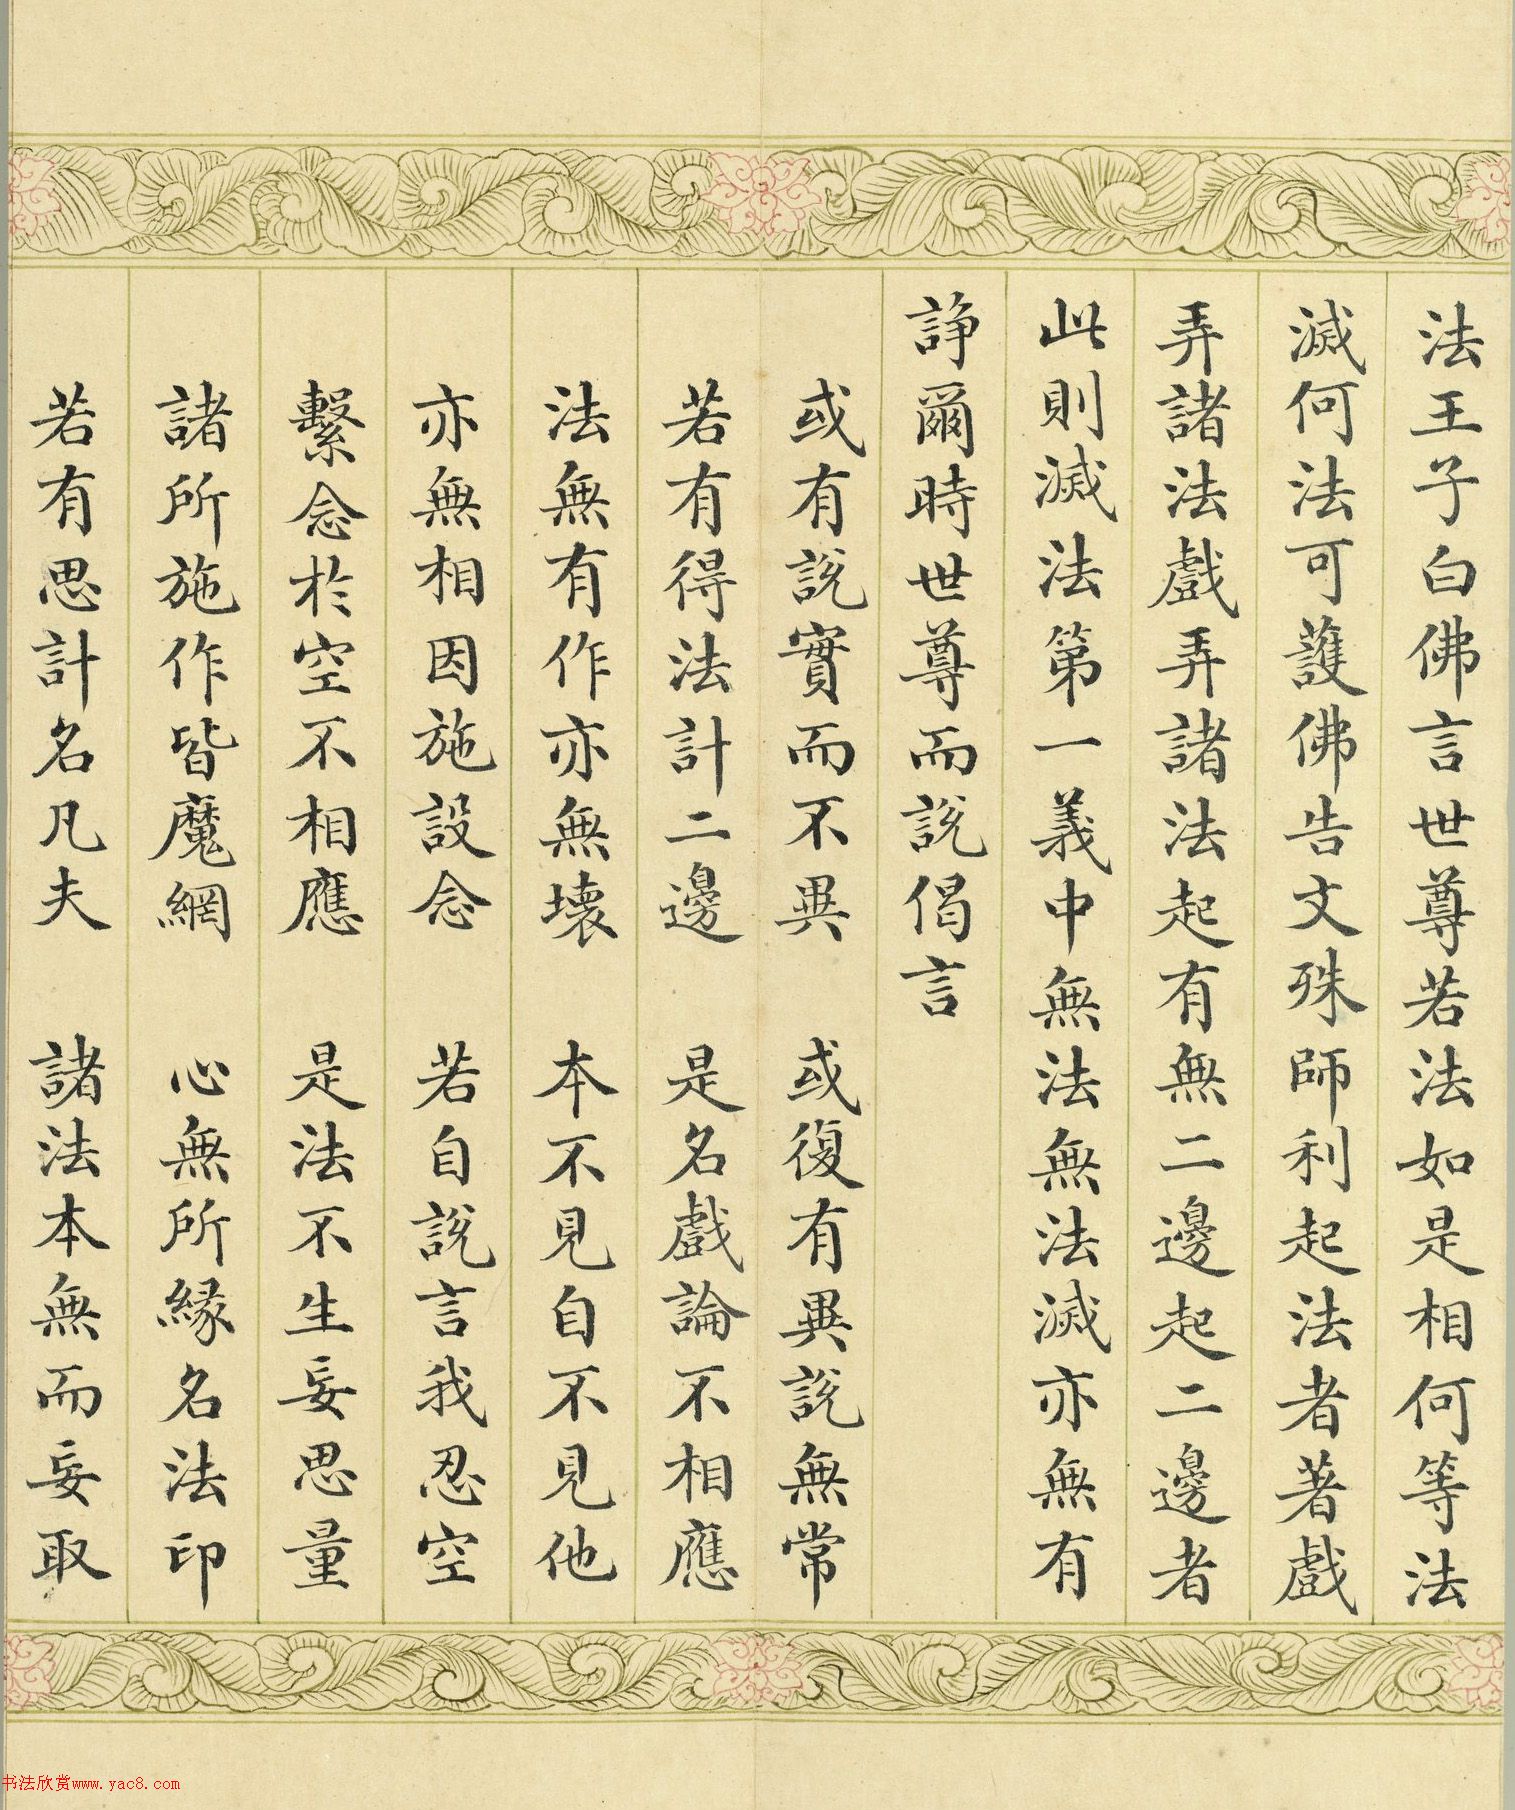 法王子白佛言世尊若法如是相何等法
滅何法可護佛告文殊師利起法者著戲
弄諸法戲弄諸法起有無二邊起二邊者
此則滅法第一義中無法無法滅亦無有
諍爾時世尊而說偈言
或有說實而不異　或復有異說無常
若有得法計二邊　是名戲論不相應
法無有作亦無壞　本不見自不見他
亦無相因施設念　若自說言我忍空
繫念於空不相應　是法不生妄思量
諸所施作皆魔網　心無所緣名法印
若有思計名凡夫　諸法本無而妄取
书法欣赏www.yac8.com